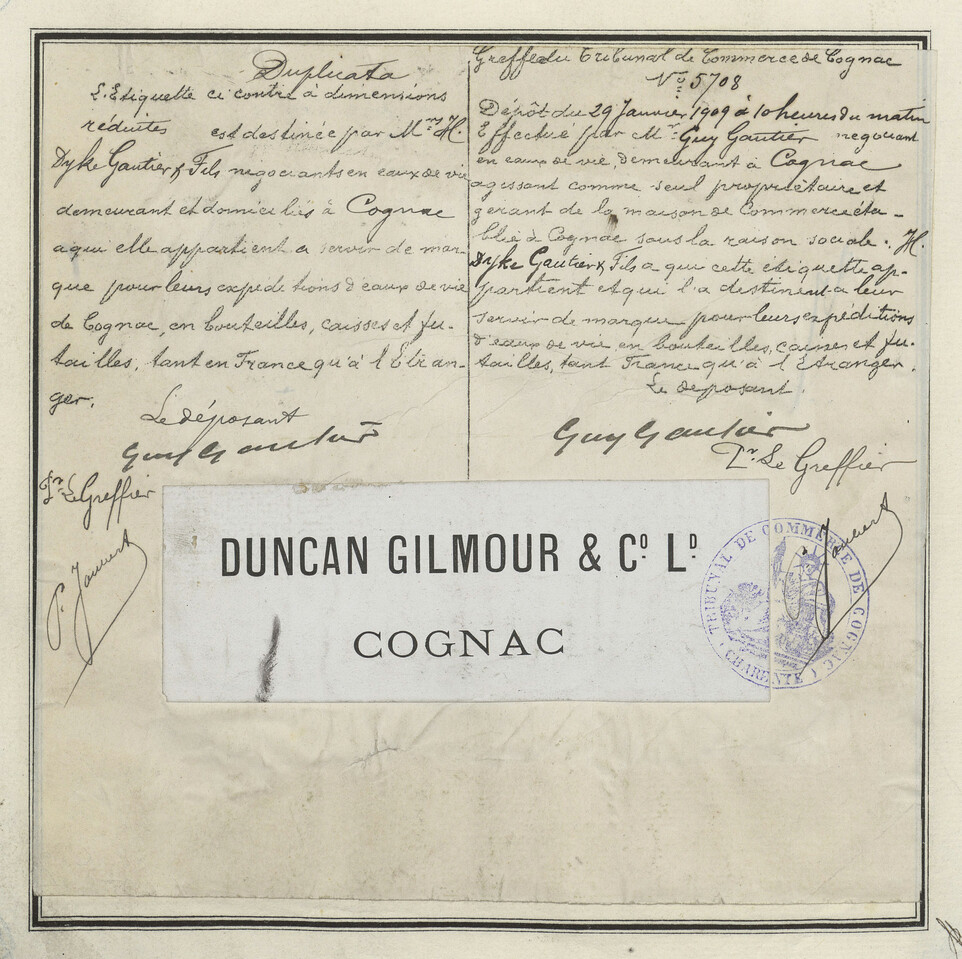 Duplicata
L'Etiquette ci contre à dimensions
réduites est destinée par Mrs H.
Dyke Gautier & Fils negociants en eaux de vie
demeurant et domiciliés à Cognac
a qui elle appartient a servir de mar-
que pour leurs expeditions d'eaux de vie
de Cognac, en bouteilles, caisses et fu-
tailles, tant en France qu'à l'Etran-
ger.
Le déposant
Guy Gautier
Pr. Le Greffier
P. Joubert
Greffe du Tribunal de Commerce de Cognac
No 5708
Dépôt du 29 Janvier 1909 à 10 heures du matin
Effectué par Mr Guy Gautier negociant
en eaux de vie, demeurant à Cognac
agissant comme seul propriétaire et
gérant de la maison de Commerce éta-
blie à Cognac sous la raison sociale. H.
Dyke Gautier & Fils a qui cette etiquette ap-
partient et qui l'a destinent a leur
servir de marque pour leurs expéditions
d'eaux de vie en bouteilles, caisses et fu-
tailles, tant France qu'à l'Etranger.
Le deposant
Guy Gautier
Pr. Le Greffier
DUNCAN GILMOUR & Co. LD.
COGNAC
TRIBUNAL DE COMMERCE DE COGNAC
(CHARENTE)